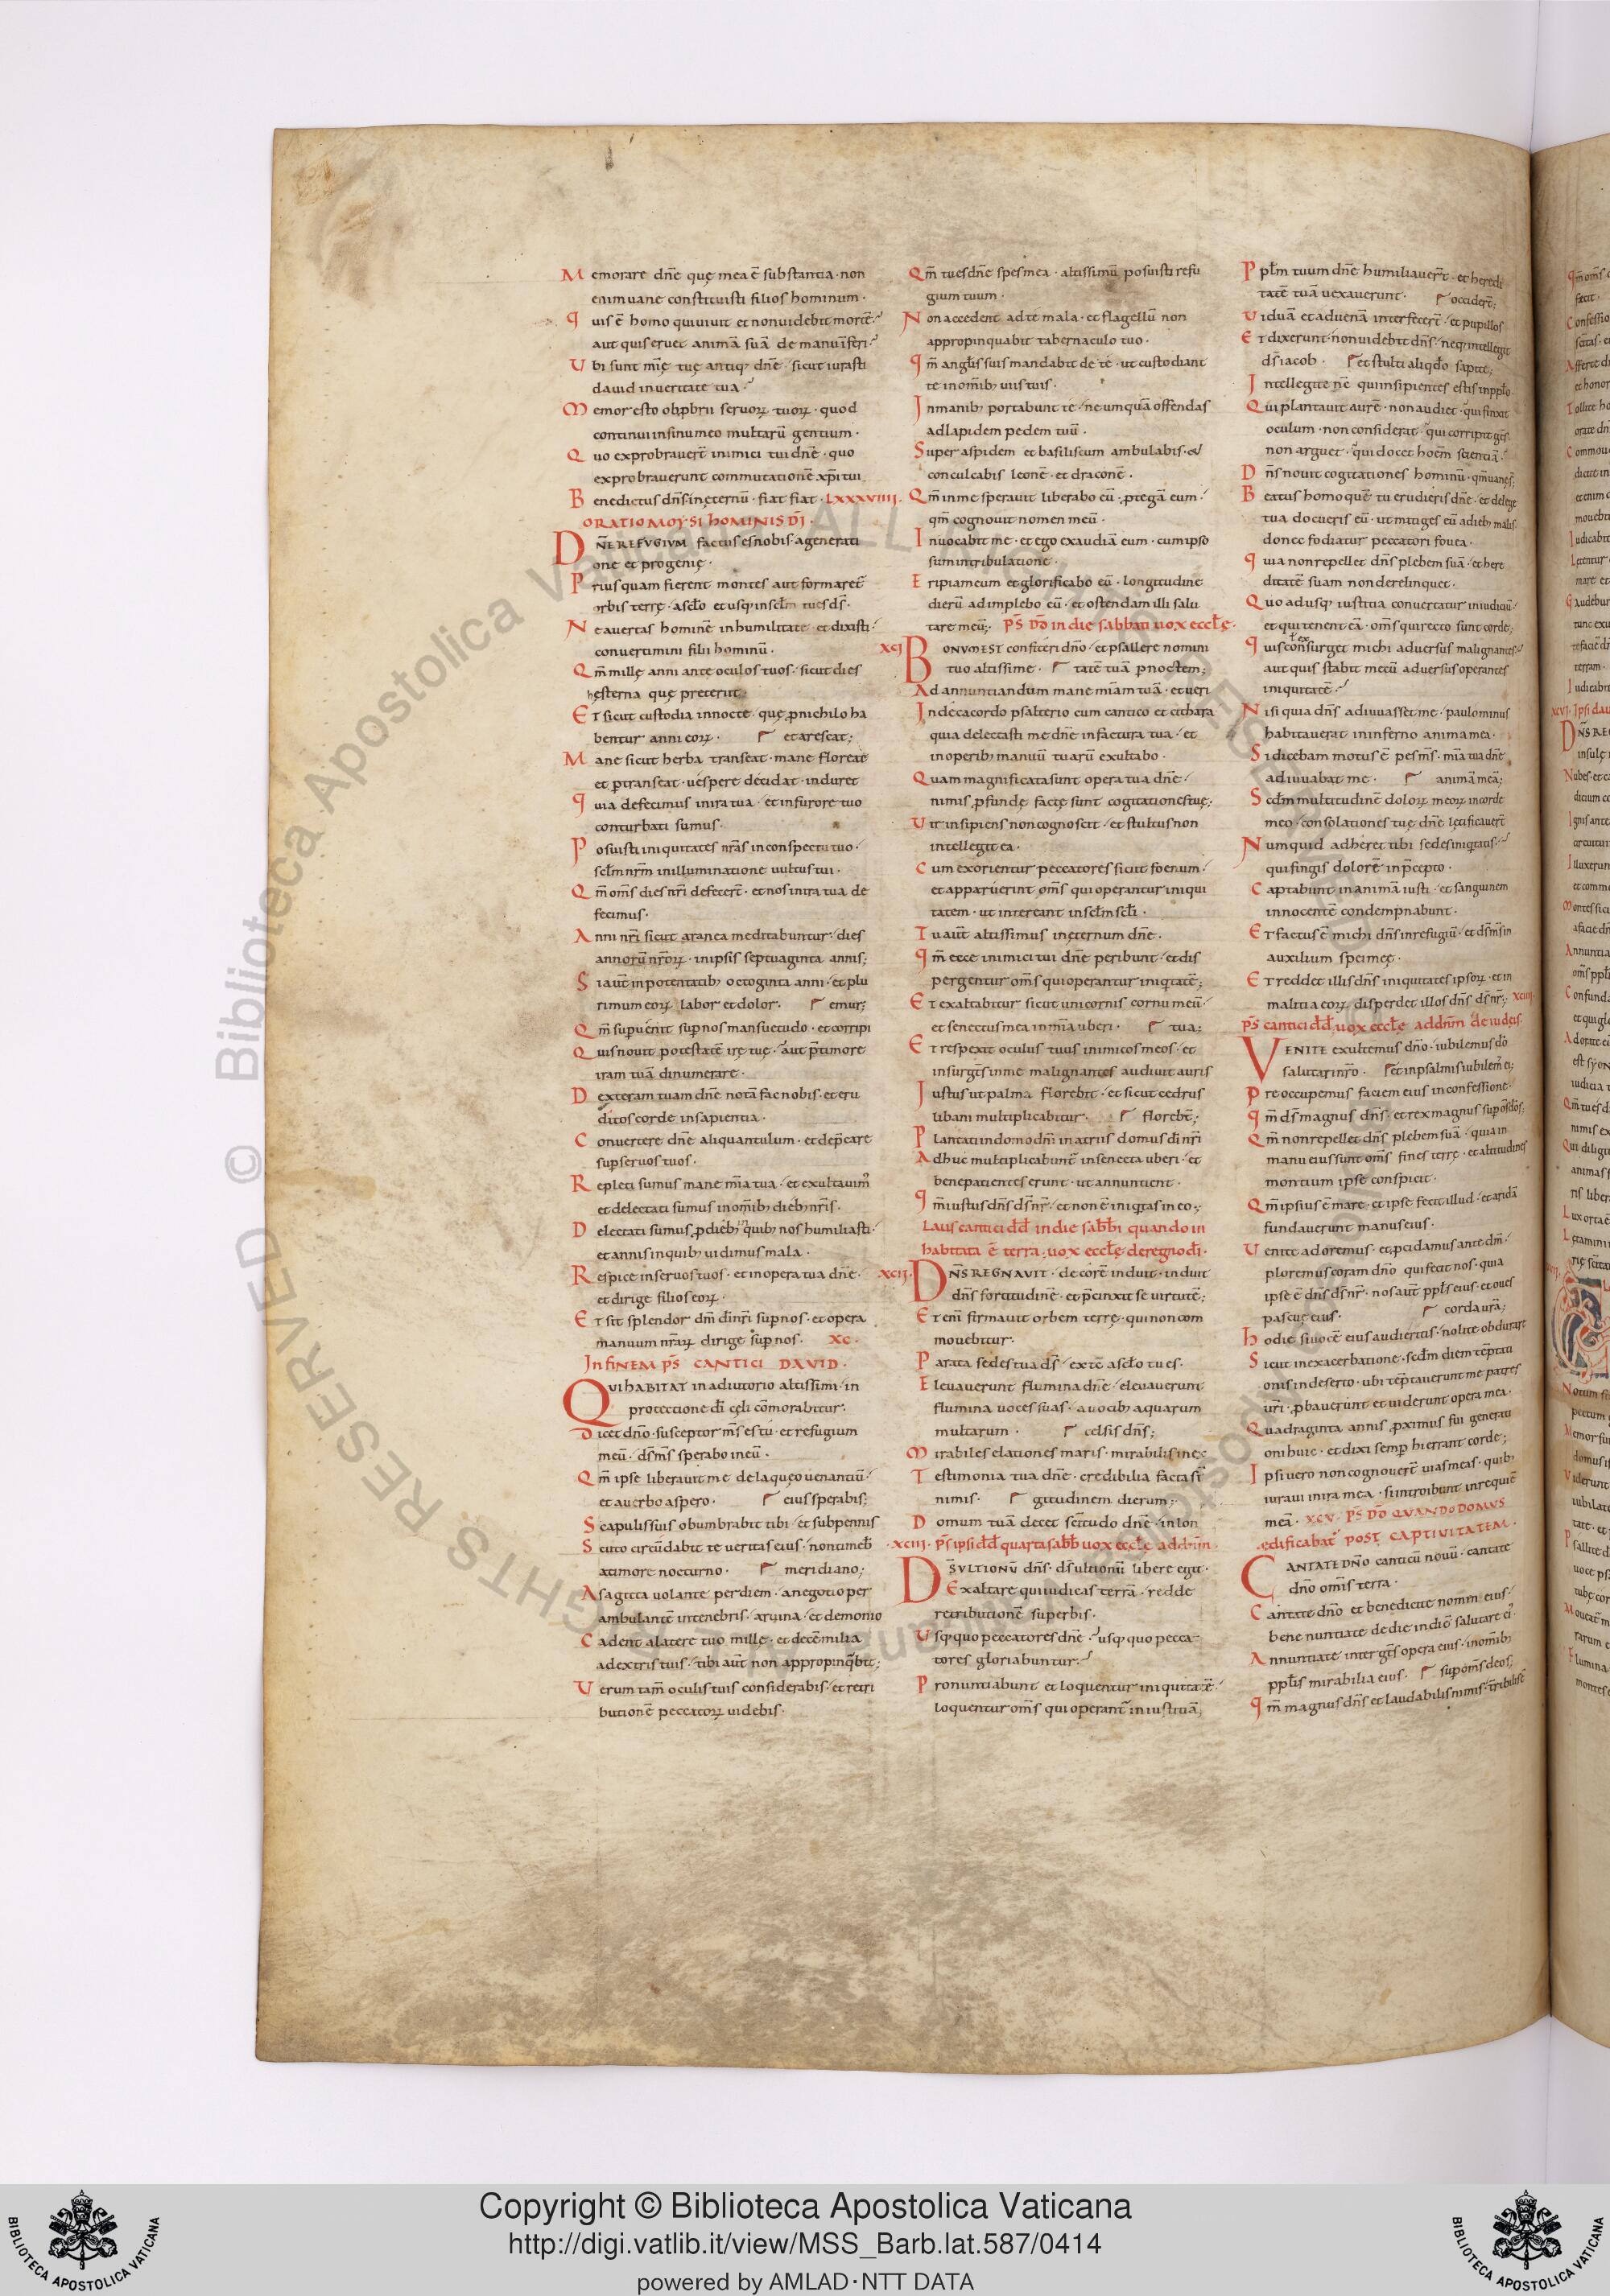 Memorare dn̄e quę mea ē substantia · non
enim uane constituisti filios hominum ·
Quis ē homo qui uiuit et non uidebit mortē·
aut quis eruet animā suā de manu inferi·
Ubi sunt mīę tuę antiq; dn̄e · sicut iurasti
dauid in ueritate tua·
Memor esto obpbrii seruoꝝ tuoꝝ · quod
continui in sinu meo multarū gentium ·
Quo exprobrauer̄t inimici tui dn̄e · quo
exprobrauerunt commutationē xp̄i tui
Benedictus dn̄s in ęternū · fiat fiat · LXXXVIIII.
ORATIO MOYSI HOMINIS DĪ ·
DN̄E REFUGIUM factus es nobis · a generati
one et progenię ·
Priusquam fierent montes aut formaret̄
orbis terrę · a scl̄o et usq; in scl̄m tu es ds̄ ·
Ne auertas hominē in humilitatē · et dixisti·
conuertimini filii hominū ·
Qm̄ mille anni ante oculos tuos · sicut dies
hęsterna quę preteriit;
Et sicut custodia in nocte · quę pnichilo ha
bentur anni eoꝝ · et arescat;
Mane sicut herba transeat · mane floreat
et ptranseat · uespere decidat · induret
Quia defecimus in ira tua · et in furore tuo
conturbati sumus·
Posuisti iniquitates nr̄as in conspectu tuo·
scl̄m nr̄m in illuminatione uultus tui ·
Qm̄ om̄s dies nr̄i defecer̄t · et nos in ira tua de
fecimus·
Anni nr̄i sicut aranea meditabuntur · dies
annorū nr̄oꝝ · in ipsis septuaginta annis;
Si aut̄ in potentatib; octoginta anni · et plu
rimum eoꝝ labor et dolor · emur;
Qm̄ supuenit sup nos mansuetudo · et corripi
Quis nouit potestatē irę tuę · aut p̄ timore
iram tuā dinumerare ·
Dexteram tuam dn̄e notā fac nobis · et eru
ditos corde in sapientia ·
Conuertere dn̄e aliquantulum · et dep̄care
sup seruos tuos ·
Repleti sumus mane mīa tua · et exultauim᷒
et delectati sumus in om̄ib; dieb; nr̄is ·
Delectati sumus p dieb; quib; nos humiliasti·
et annis in quib; uidimus mala ·
Respice in seruos tuos · et in opera tua dn̄e ·
et dirige filios eoꝝ ·
Et sit splendor dn̄i dī nr̄i sup nos · et opera
manuum nr̄aꝝ dirige sup nos · XC ·
IN FINEM PS̄ CANTICI DAVID ·
QUI HABITAT in adiutorio altissimi · in
protectione dī cęli cōmorabitur·
Dicet dn̄o · susceptor m̄s es tu · et refugium
meū · ds̄ m̄s sperabo in eū ·
Qm̄ ipse liberauit me de laqueo uenantiū·
et a uerbo aspero · eius sperabis;
Scapulis suis obumbrabit tibi · et sub pennis
Scuto circūdabit te ueritas eius · non timeb̄
a timore nocturno · meridiano;
A sagitta uolante per diem · a negotio per
ambulantē in tenebris · a ruina · et demonio
Cadent a latere tuo mille · et decē milia
a dextris tuis · tibi aut̄ non appropinq̄bit;
Uerum tam̄ oculis tuis considerabis · et retri
butionē peccatoꝝ uidebis ·
Qm̄ tu es dn̄e spes mea · altissimū posuisti refu
gium tuum ·
Non accedent ad te mala · et flagellū non
appropinquabit tabernaculo tuo ·
Qm̄ angl̄is suis mandabit de te · ut custodiant
te in om̄ib; uiis tuis ·
In manib; portabunt te · ne umquā offendas
ad lapidem pedem tuū ·
Super aspidem et basiliscum ambulabis · et
conculcabis leonē · et draconē ·
Qm̄ in me sperauit liberabo eū · ptegā eum·
qm̄ cognouit nomen meū ·
Inuocabit me · et ego exaudiā eum · cum ipso
sum in tribulatione ·
Eripiam eum et glorificabo eū · longitudine
dierū adimplebo eū · et ostendam illi salu
tare meū; PS̄ DD̄ in die sabbati uox eccl̄ę ·
XCI BONUM EST confiteri dn̄o · et psallere nomini
tuo altissime · tatē tuā p noctem;
Ad annuntiandum mane mīam tuā · et ueri
In decacordo psalterio cum cantico et cithara
quia delectasti me dn̄e in factura tua · et
in operib; manuū tuarū exultabo ·
Quam magnificata sunt opera tua dn̄e·
nimis pfundę factę sunt cogitationes tuę;
Uir insipiens non cognoscit · et stultus non
intelleget ea ·
Cum exorientur peccatores sicut foenum·
et apparuerint om̄s qui operantur iniqui
tatem · ut intereant in scl̄m scl̄i ·
Tu aut̄ altissimus in ęternum dn̄e ·
Qm̄ ecce inimici tui dn̄e peribunt · et dis
pergentur om̄s qui operantur iniqtatē;
Et exaltabitur sicut unicornis cornu meū·
et senectus mea in mīa uberi · tua;
Et respexit oculus tuus inimicos meos · et
insurgēs in me malignantes audiuit auris
Iustus ut palma florebit · et sicut cedrus
libani multiplicabitur · florebt̄;
Plantati in domo dn̄i in atriis domus dī nr̄i
Adhuc multiplicabunt̄ in senecta uberi · et
bene patientes erunt · ut annuntient ·
Qm̄ iustus dn̄s ds̄ nr̄ · et non ē iniqtas in eo;
Laus cantici dd̄ in die sabb̄i quando in
habitata ē terra · uox eccl̄ę de regno dī ·
XCII · DN̄S REGNAVIT · decorē induit · induit
dn̄s fortitudinē · et p̄cinxit se uirtutē;
Eteni firmauit orbem terrę · qui non com
mouebitur·
Parata sedes tua ds̄ · ex tē a scl̄o tu es ·
Eleuauerunt flumina dn̄e · eleuauerunt
flumina uoces suas · a uocib; aquarum
multarum · celsis dn̄s;
Mirabiles elationes maris · mirabilis in ex
Testimonia tua dn̄e · credibilia facta st̄
nimis · gitudinem dierum;
Domum tuā decet sc̄itudo dn̄e · in lon
· XCIII · PS̄ ipsi dd̄ quarta sabb̄ uox eccl̄ę ad dn̄m ·
DS̄ ULTIONŪ dn̄s · ds̄ ultionū libere egit ·
Exaltare qui iudicas terrā · redde
retributionē superbis ·
Usq; quo peccatores dn̄e · usq; quo pecca
tores gloriabuntur·
Pronuntiabunt et loquentur iniquitatē·
loquentur om̄s qui operant᷑ iniustitiā;
Ppl̄m tuum dn̄e humiliauer̄t · et heredi
tatē tuā uexauerunt · occider̄t;
Uiduā et aduenā interfecer̄t · et pupillos
Et dixerunt · non uidebit dn̄s · neq; intelleget
ds̄ iacob · et stulti aliqd̄o sapite;
Intellegite nē qui insipientes estis in ppl̄o
Qui plantauit aurē · non audiet · qui finxit
oculum · non considerat · qui corripit gēs·
non arguet · qui docet hoēm scientiā·
Dn̄s nouit cogitationes hominū · qm̄ uanęs;
Beatus homo quē tu erudieris dn̄e · et de lege
tua docueris eū · ut mitiges eū a dieb; malis·
donec fodiatur peccatori fouea ·
Quia non repellet dn̄s plebem suā · et here
ditatē suam non derelinquet ·
Quoadusq; iustitia conuertatur in iudiciū·
et qui tenent eā · om̄s qui recto sunt corde;
ł ex
Quis consurget michi aduersus malignantes·
aut quis stabit mecū aduersus operantes
iniquitatē·
Nisi quia dn̄s adiuuasset me · paulominus
habitauerat in inferno anima mea ·
Si dicebam motus ē pes m̄s · mīa tua dn̄e
adiuuabat me · animā meā;
Scd̄m multitudinē doloꝝ meoꝝ in corde
meo · consolationes tuę dn̄e lętificauer̄t
Numquid adheret tibi sedes iniqtatis·
qui fingis dolorē in p̄cepto ·
Captabunt in animā iusti · et sanguinem
innocentē condempnabunt ·
Et factus ē michi dn̄s in refugiū · et ds̄ m̄s in
auxilium spei meę ·
Et reddet illis dn̄s iniquitates ipsoꝝ · et in
malitia eoꝝ disperdet illos dn̄s ds̄ nr̄; XCIIII
PS̄ cantici dd̄ uox eccl̄ę ad dn̄m de iudeis ·
VENITE exultemus dn̄o · iubilemus dō
salutari nr̄o · et in psalmis iubilem᷒ ei;
Preoccupemus faciem eius in confessione·
Qm̄ ds̄ magnus dn̄s · et rex magnus sup om̄s deos;
Qm̄ non repellet dn̄s plebem suā · quia in
manu eius sunt om̄s fines terrę · et altitudines
montium ipse conspicit ·
Qm̄ ipsius ē mare · et ipse fecit illud · et aridā
fundauerunt manus eius ·
Uenite adoremus · et pcidamus ante dm̄·
ploremus coram dn̄o qui fecit nos · quia
ipse ē dn̄s ds̄ nr̄ · nos aut̄ ppl̄s eius · et oues
pascuę eius · corda ur̄a;
Hodie si uocē eius audieritis · nolite obdurare
Sicut in exacerbatione · scd̄m diem tēptati
onis in deserto · ubi tēptauerunt me patres
ur̄i · pbauerunt et uiderunt opera mea ·
Quadraginta annis proximus fui generati
oni huic · et dixi semp hi errant corde;
Ipsi uero non cognouer̄t uias meas · quib;
iuraui in ira mea · si introibunt in requiē
meā · XCV · PS̄ DD̄ QUANDO DOMUS
edificabat᷑ POST CAPTIVITATEM ·
CANTATE DN̄O canticū nouū · cantate
dn̄o omīs terra ·
Cantate dn̄o et benedicite nomini eius·
bene nuntiate de die in diē salutare ei᷒·
Annuntiate inter gēs opera eius · in om̄ib;
ppl̄is mirabilia eius · sup om̄s deos;
Qm̄ magnus dn̄s et laudabilis nimis · t̄ribilis ē
BIBLIOTECA APOSTOLICA VATICANA
Copyright © Biblioteca Apostolica Vaticana
http://digi.vatlib.it/view/MSS_Barb.lat.587/0414
powered by AMLAD·NTT DATA
BIBLIOTECA APOSTOLICA VATICANA